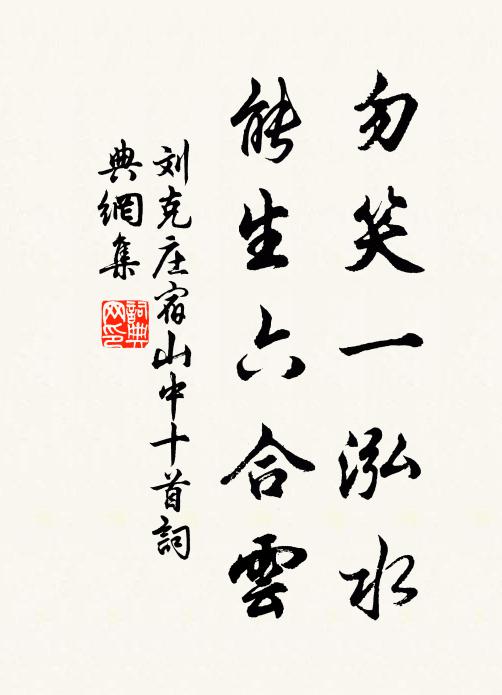 勿笑一泓水
能生六合雲
刘克庄宿山中十首詞
典網集
詞典
网印